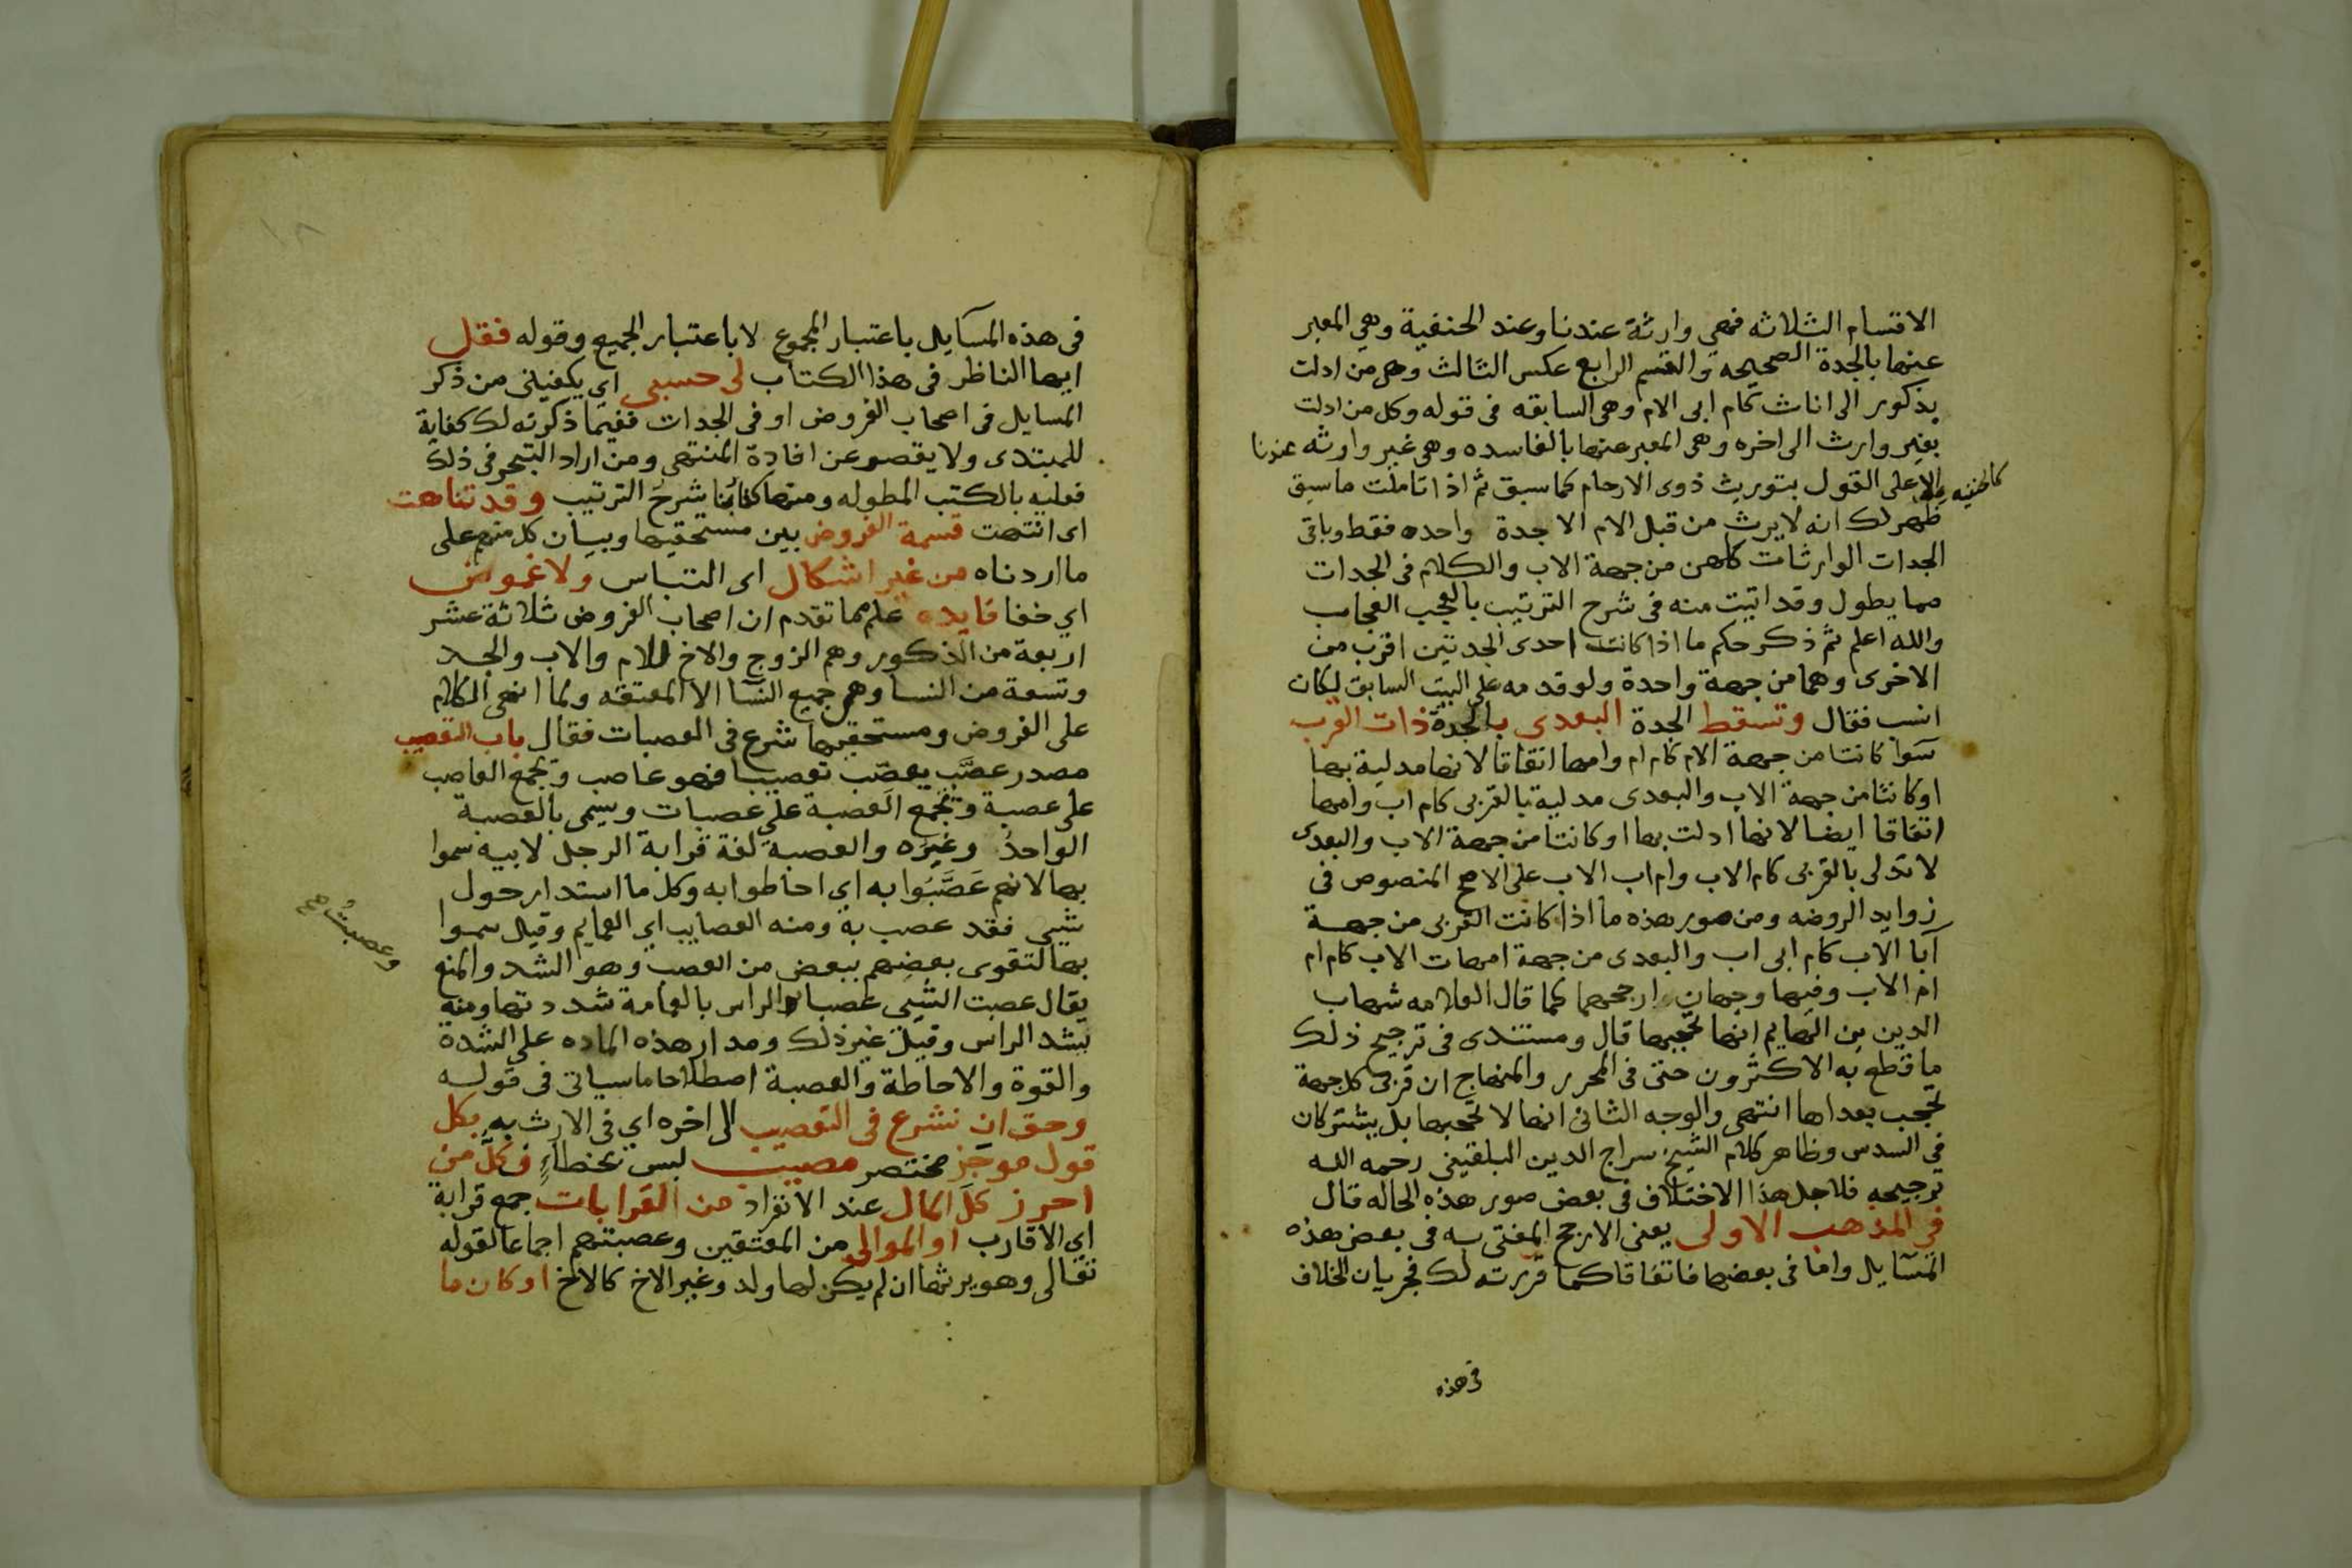 الاقسام الثلاثه فهى وارثة عندنا وعند الحنفية وهي المعبر
عنها بالجدة الصحيحه والقسم الرابع عكس الثالث وهى من ادلت
بذكور الى اناث كام ابى الام وهى السابقه فى قوله وكل من ادلت
بغير وارث الى اخره وهى المعبر عنها بالفاسده وهى غير وارثه عندنا
كالحنفيه
الا على القول بتوريث ذوى الارحام كما سبق ثم اذا تاملت ماسبق
ظهر لك انه لا يرث من قبل الام الا جدة واحده فقط وباقى
الجدات الوارثات كلهن من جهة الاب والكلام فى الجدات
مما يطول وقد اتيت منه فى شرح الترتيب بالعجب العجاب
والله اعلم ثم ذكر حكم ما اذا كانت احدى الجدتين اقرب من
الاخرى وهما من جهة واحدة ولو قدمه على البيت السابق لكان
انسب فقال وتسقط الجدة البعدى بالجدة ذات القرب
سوا كانتا من جهة الام كام ام وامها اتفاقا لانها مدلية بها
او كانتا من جهة الاب والبعدى مدلية بالقربى كام اب وامها
اتفاقا ايضا لانها ادلت بها او كانتا من جهة الاب والبعدى
لا تدلى بالقربى كام الاب وام اب الاب على الاصح المنصوص فى
زوايد الروضه ومن صور هذه ما اذا كانت القربى من جهة
آبا الاب كام ابى اب والبعدى من جهة امهات الاب كام ام
ام الاب وفيها وجهان ارجحهما كما قال العلامه شهاب
الدين بن الهايم انها تحجبها قال ومستندى فى ترجيح ذلك
ما قطع به الاكثرون حتى فى المحرر والمنهاج ان قربى كل جهة
تحجب بعداها انتهى والوجه الثانى انها لا تحجبها بل يشتركان
في السدس وظاهر كلام الشيخ سراج الدين البلقينى رحمه الله
ترجيحه فلاجل هذا الاختلاف فى بعض صور هذه الحاله قال
في المذهب الاولى يعنى الارجح المفتى به فى بعض هذه
المسآيل واما فى بعضها فاتفاقا كما قررته لك فجريان الخلاف
فى هذه
فى هذه المسآيل باعتبار المجموع لا باعتبار الجميع وقوله فقل
ايها الناظر فى هذا الكتاب لى حسبى اي يكفينى من ذكر
المسايل فى اصحاب الفروض او فى الجدات ففيما ذكرته لك كفاية
للمبتدى ولا يقصر عن افادة المنتهى ومن اراد التبحر فى ذلك
فعليه بالكتب المطوله ومنها كتابنا شرح الترتيب وقد تناهت
اى انتهت قسمة الفروض بين مستحقيها وبيان كل منهم على
ما اردناه من غير اشكال اى التباس ولا غموض
اي خفا فايده علم مما تقدم ان اصحاب الفروض ثلاثة عشر
اربعة من الذكور وهم الزوج والاخ للام والاب والجد
وتسعة من النسا وهن جميع النسا الا المعتقه ولما انهى الكلام
على الفروض ومستحقيها شرع فى العصبات فقال باب التعصيب
مصدر عصَّب يعصّب تعصيبا فهو عاصب وتجمع العاصب
على عصبة وتُجْمَع العَصبة على عصبات ويسمى بالعصبة
الواحدُ وغيرُه والعصبه لغة قرابة الرجل لابيه سموا
بها لانهم عَصَّبُوا به اي احاطوا به وكل ما استدار حول
شيى فقد عصب به ومنه العصايب اي العمايم وقيل سموا
بها لتقوى بعضهم ببعض من العصب وهو الشد والمنع
يقال عصبت الشيى عصبا والراس بالعمامة شددتها ومنه
وعصبتُ صح
يشد الراس وقيل غير ذلك ومدار هذه الماده على الشدة
والقوة والاحاطة والعصبة اصطلاحا ما سياتى فى قوله
وحق ان نشرع فى التعصيب الى اخره اي فى الارث به بكل
قول موجَز مختصر مصيب ليس بخطاءٍ فكلّ من
احرز كلَّ المال عند الانفراد من القرابات جمع قرابة
اي الاقارب او الموالى من المعتقين وعصبتهم اجماعا لقوله
تعالى وهو يرثها ان لم يكن لها ولد وغير الاخ كالاخ او كان ما